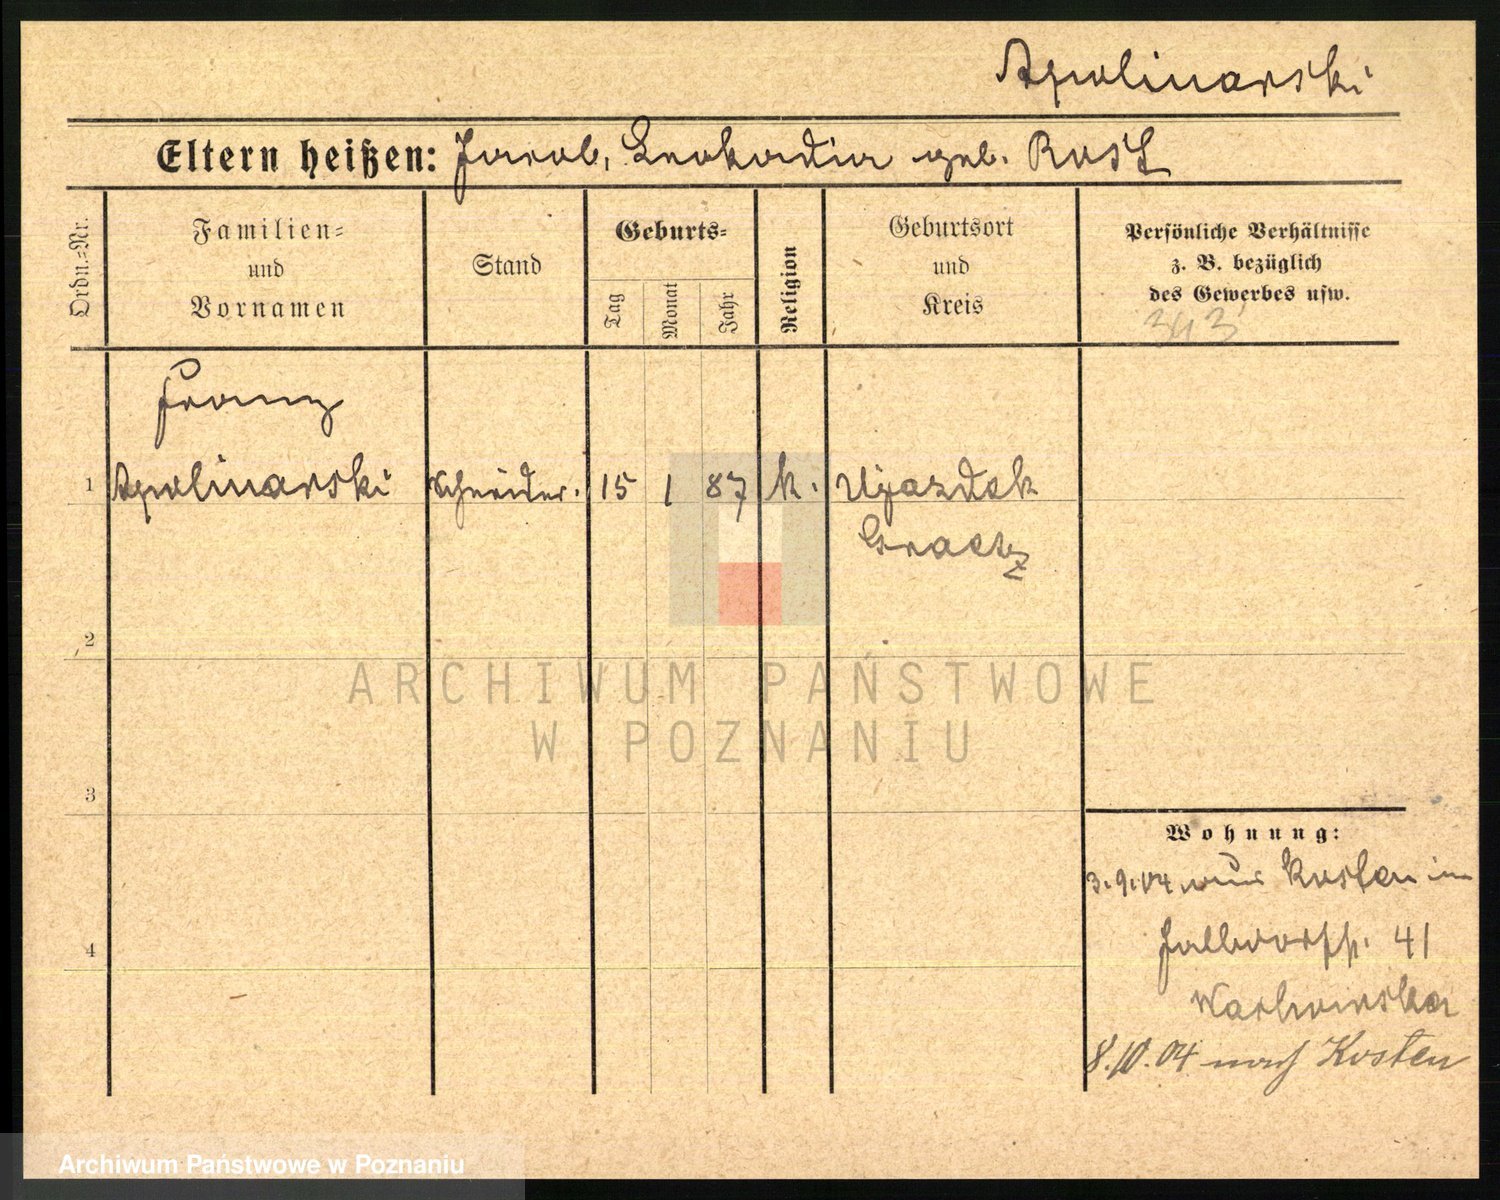 Apolinarski
Eltern heißen: Jacob, Leokadia geb. Rost
Ordn.=Nr.
Familien=
und
Vornamen
Stand
Geburts=
Tag
Monat
Jahr
Religion
Geburtsort
und
Kreis
Persönliche Verhältnisse
z. B. bezüglich
des Gewerbes usw.
343
Franz
1 Apolinarski Schneider. 15 1 87 k. Ujazdek
Graetz
2
ARCHIWUM PAŃSTWOWE
W POZNANIU
3
Wohnung:
3.9.04 aus Kosten in
41
4
8.10.04 nach Kosten
Archiwum Państwowe w Poznaniu